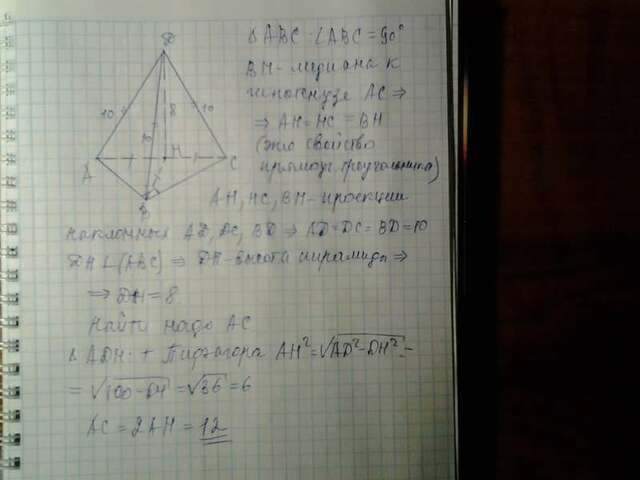 △ABC · ∠ABC = 90°
BH - медиана к
гипотенузе AC ⇒
⇒ AH = HC = BH
(это свойство
прямоуг. треугольника)
AH, HC, BH - проекции
наклонных AD, DC, BD ⇒ AD = DC = BD = 10
DH ⊥ (ABC) ⇒ DH - высота пирамиды ⇒
⇒ DH = 8
Найти надо AC
△ADH · т Пифагора AH² = √AD² - DH² =
= √100 - 64 = √36 = 6
AC = 2AH = 12
D
10
8
10
10
A
H
C
B